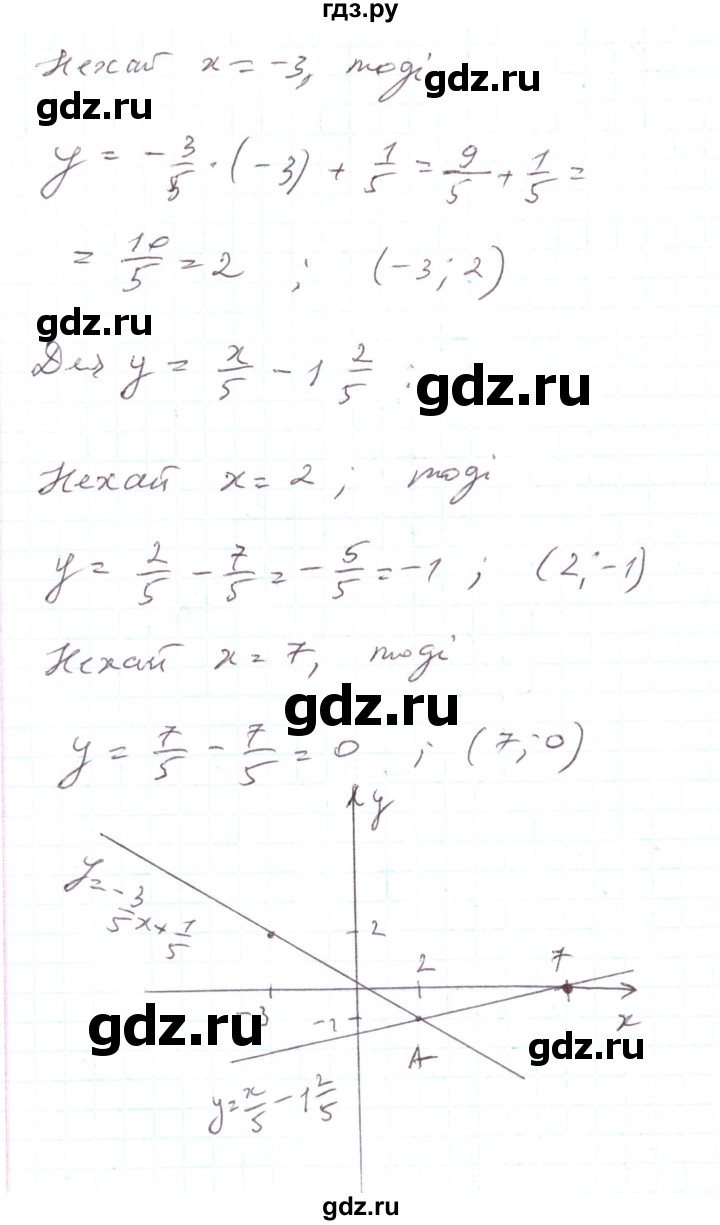 гдз.ру
Нехай x = -3, тоді
gdz.ru
gdz.ru
y = -3/5 · (-3) + 1/5 = 9/5 + 1/5 =
= 10/5 = 2 ; (-3; 2)
gdz.ru
Для y = x/5 - 1 2/5 :
gdz.ru
Нехай x = 2 ; тоді
y = 2/5 - 7/5 = -5/5 = -1 ; (2; -1)
Нехай x = 7, тоді
gdz.ru
y = 7/5 - 7/5 = 0 ; (7; 0)
y
y = -3/5 x + 1/5
2
2
7
-3
-1
x
gdz.ru
A
gdz.ru
y = x/5 - 1 2/5
gdz.ru